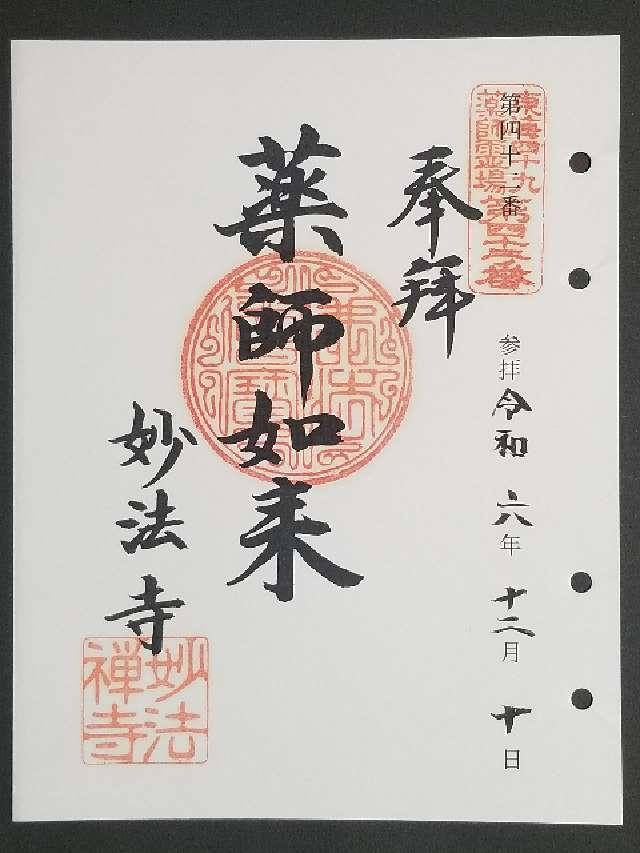 東海四十九
薬師霊場
第四十二番
参拝令和六年十二月十日
奉拝
薬師如来
妙法寺
妙法
禅寺